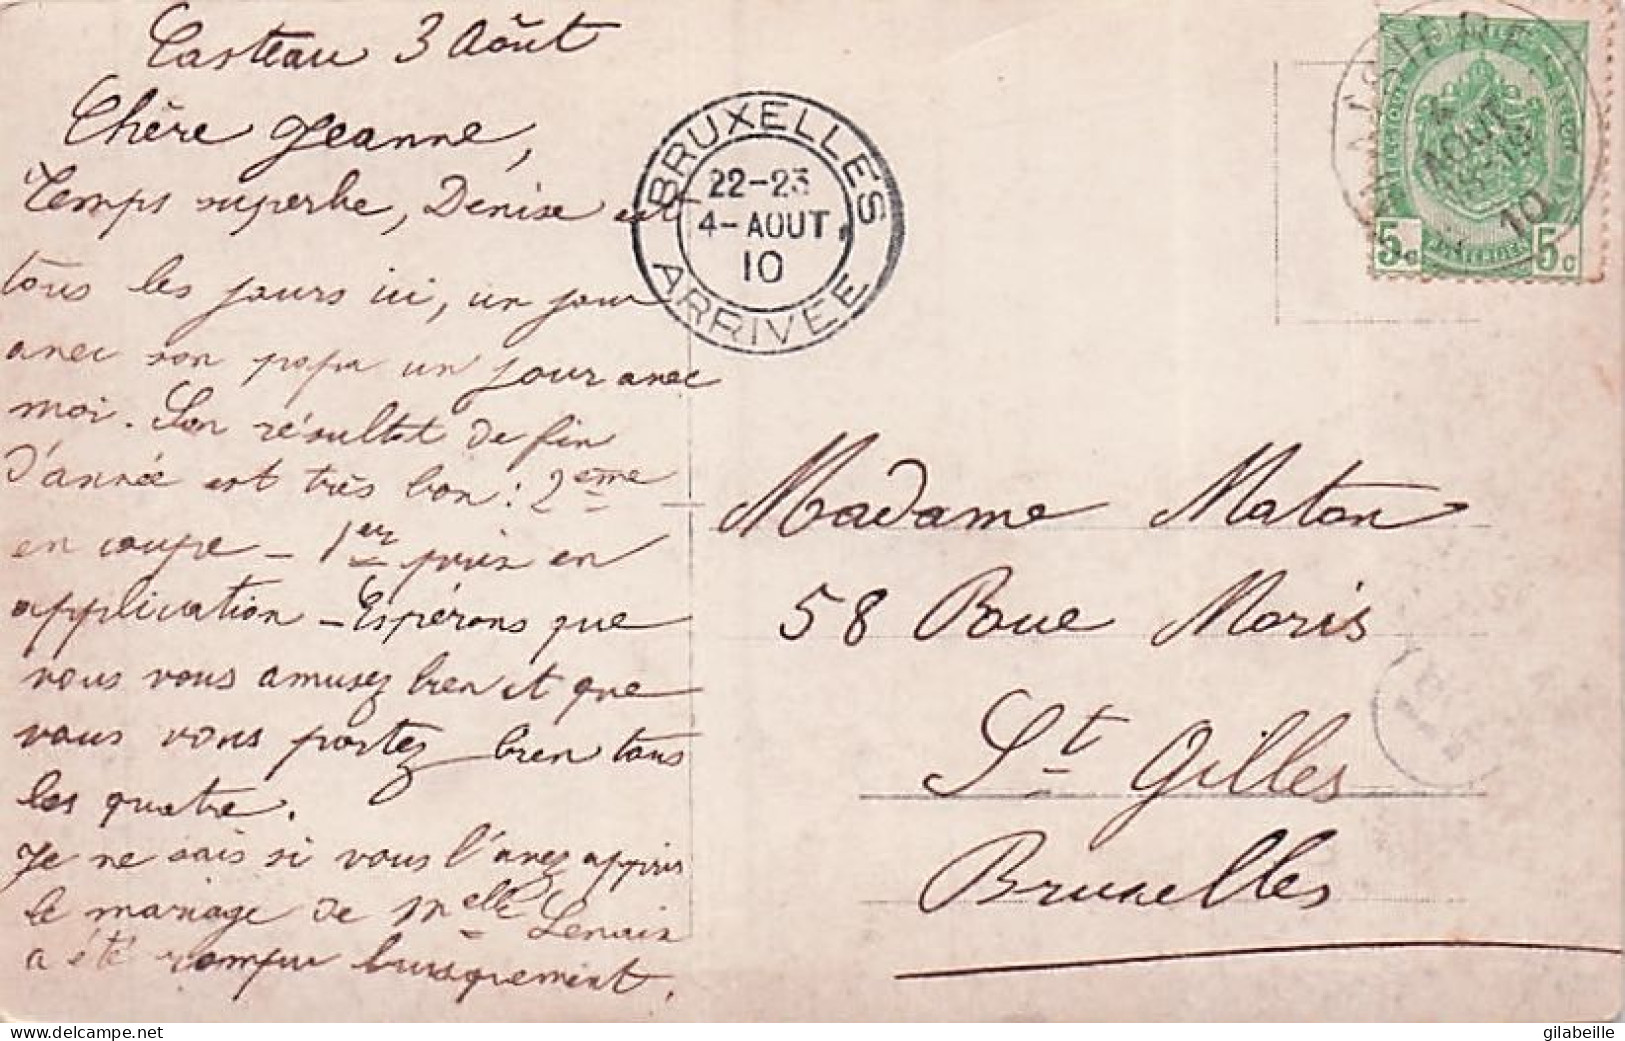 Casteau 3 Août
Chère Jeanne,
Temps superbe, Denise est
tous les jours ici, un jour
avec son papa un jour avec
moi. Son résultat de fin
d'année est très bon : 2ème
en coupe - 1er prix en
application - Espérons que
vous vous amusez bien et que
vous vous portez bien tous
les quatre.
Je ne sais si vous l'avez appris
le mariage de Melle Lenain
a été rompu brusquement.
BRUXELLES
22-23
4-AOUT
10
ARRIVEE
4
AOUT
10
5c 5c
Madame Maton
58 Rue Moris
St Gilles
Bruxelles
https://www.delcampe.net
gilabeille